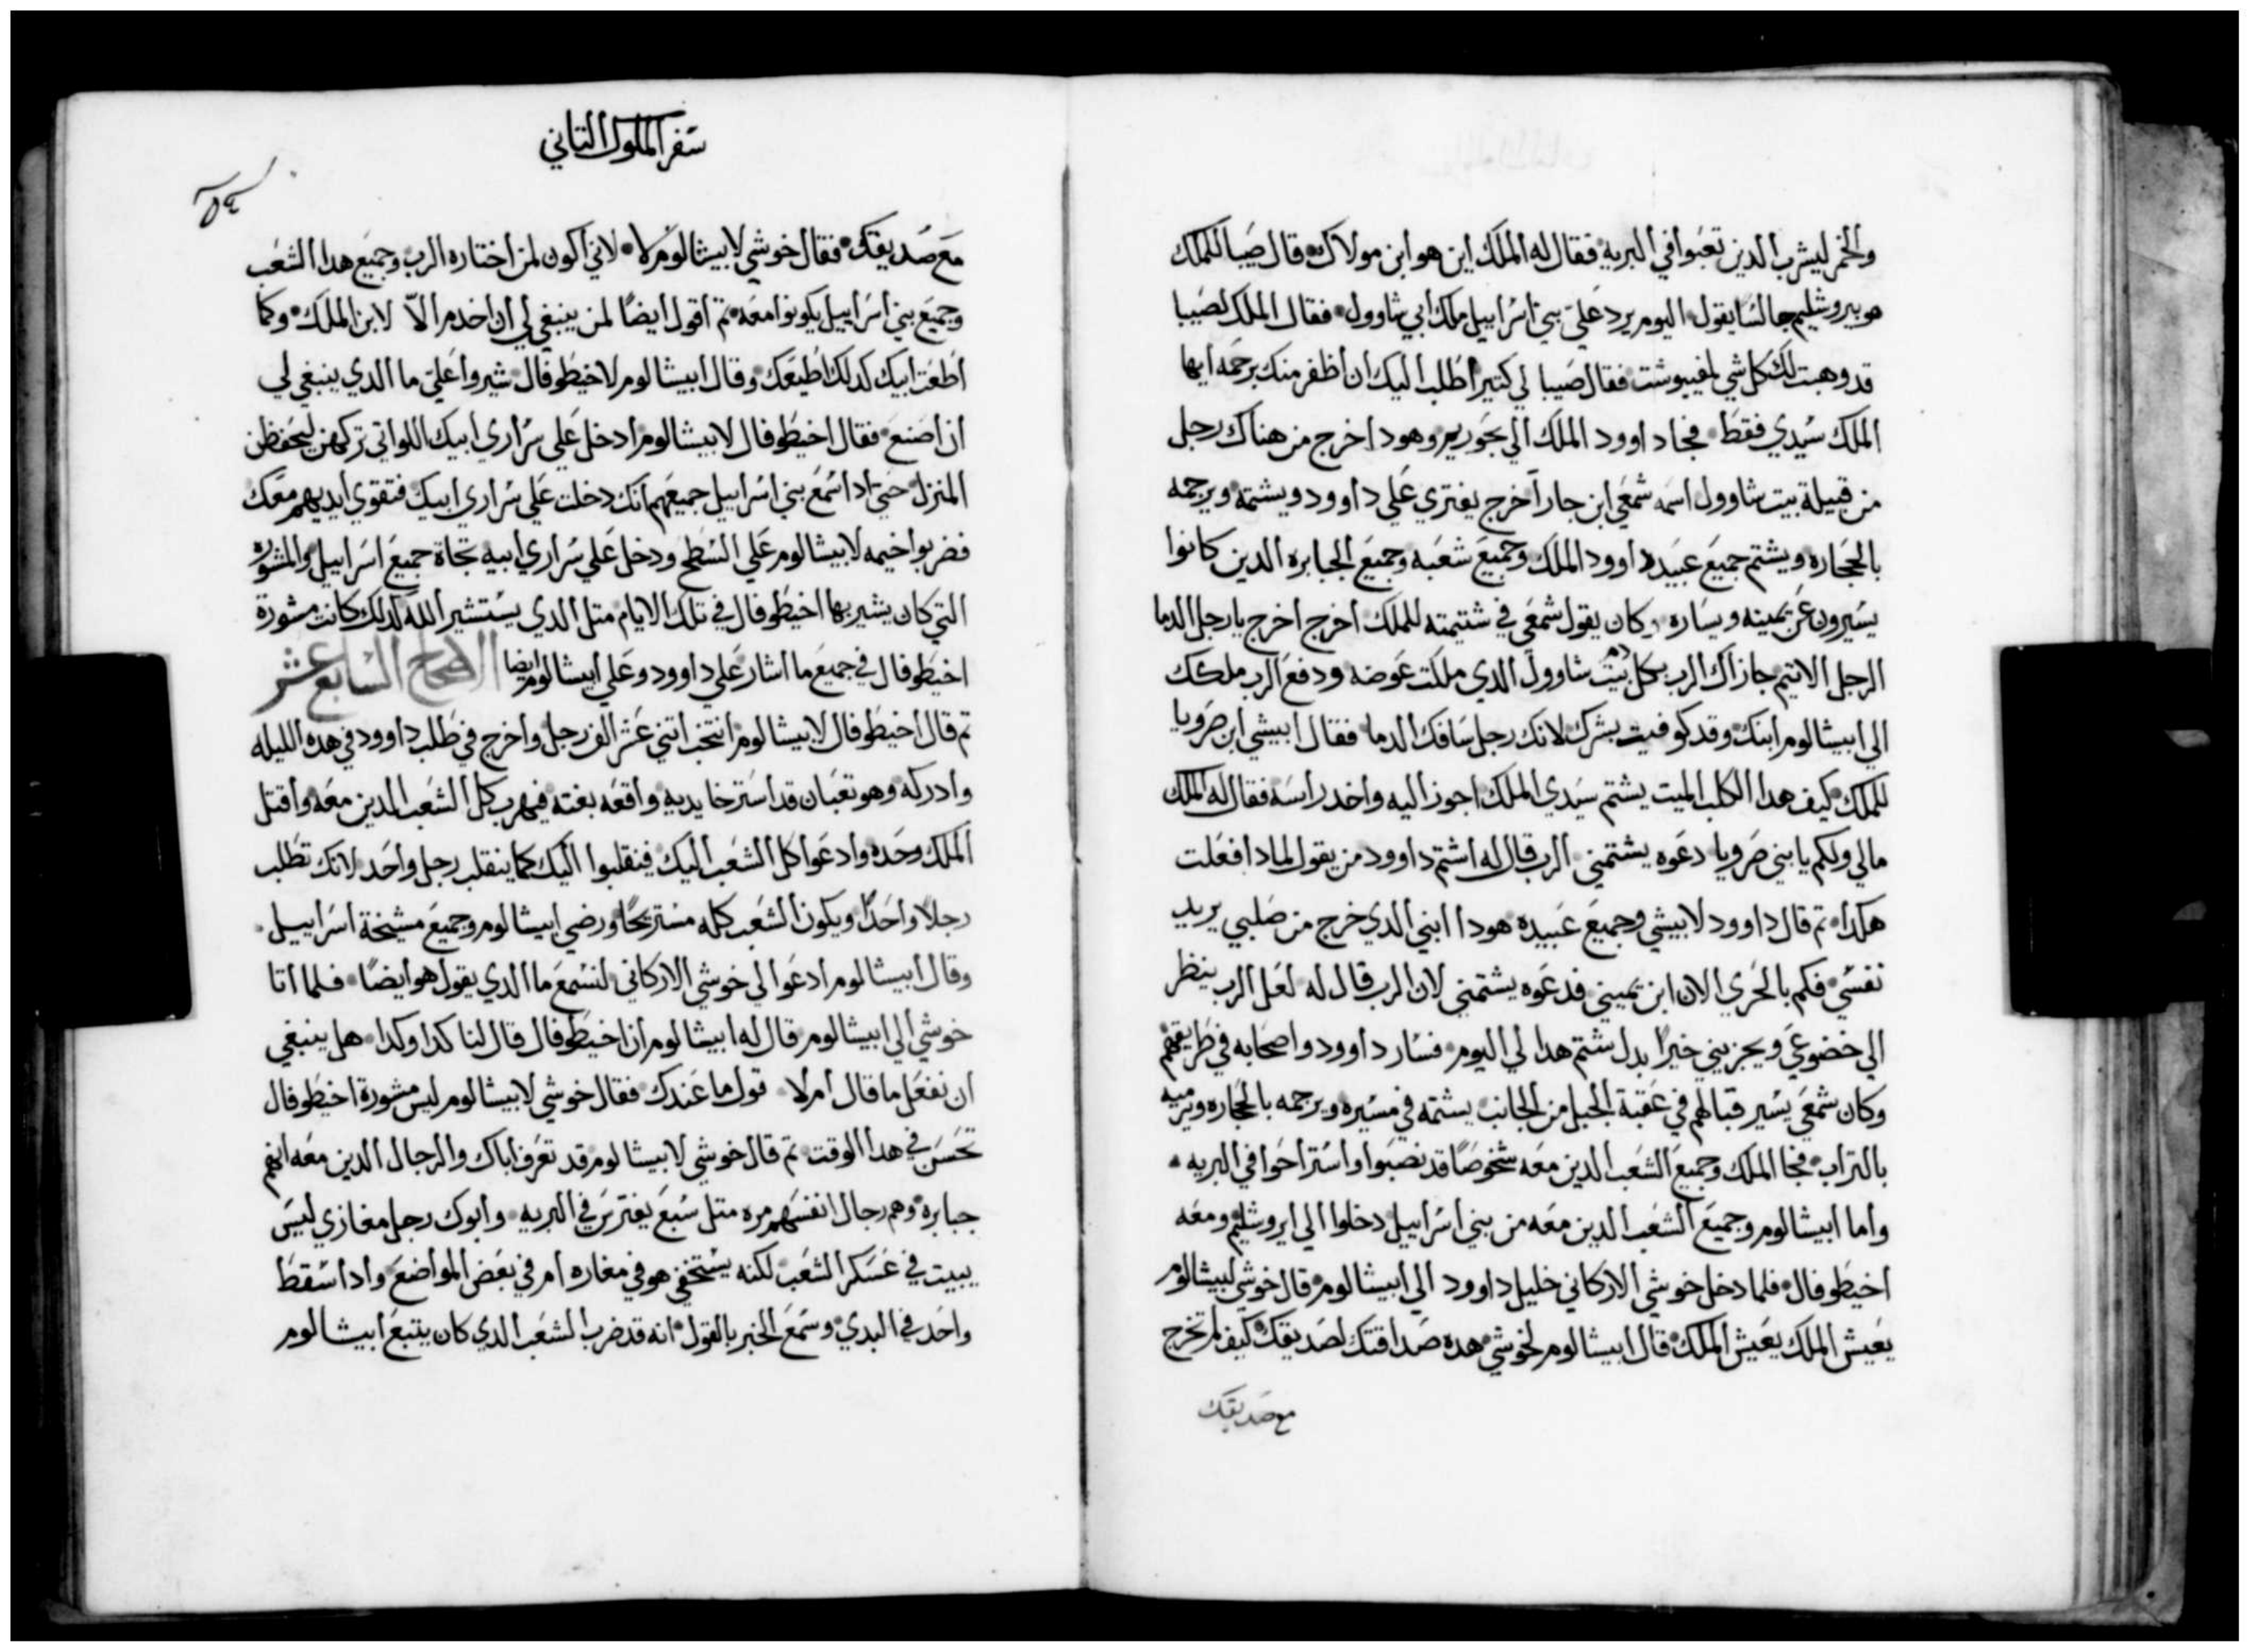 والخمر ليشرب الدين تعبوا في البرية فقال له الملك اين هو ابن مولاك قال صيبا للملك
هو بيروشليم جالسا يقول اليوم يرد علي بني اسراييل ملك ابي شاوول فقال الملك لصيبا
قد وهبت لك كل شي لمفيبوشت فقال صيبا لي كتير اطلب اليك ان اظفر منك برحمه ايها
الملك سيدي فقط فجا داوود الملك الي بحوريم وهودا خرج من هناك رجل
من قبيلة بيت شاوول اسمه شمعي ابن جارا خرج يفتري علي داوود ويشتمه ويرجمه
بالحجاره ويشتم جميع عبيد داوود الملك وجميع شعبه وجميع الجبابره الدين كانوا
يسيرون عن يمينه ويساره وكان يقول شمعي في شتيمته للملك اخرج اخرج يا رجل الدما
الرجل الاتيم جازاك الرب بكل دم بيت شاوول الدي ملكت عوضه ودفع الرب ملكك
الي ابيشالوم ابنك وقد كوفيت بشرك لانك رجل سافك الدما فقال ابيشي ابن صرويا
للملك كيف هدا الكلب الميت يشتم سيدي الملك اجوز اليه واخد راسه فقال له الملك
مالي ولكم يا بني صرويا دعوه يشتمني الرب قال له اشتم داوود من يقول لمادا فعلت
هكدا تم قال داوود لابيشي وجميع عبيده هودا ابني الدي خرج من صلبي يريد
نفسي فكم بالحري الان ابن يميني فدعوه يشتمني لان الرب قال له لعل الرب ينظر
الي خضوعي ويجزيني خيرا بدل شتم هدا لي اليوم فسار داوود واصحابه في طريقهم
وكان شمعي يسير قبالهم في عقبة الجبل من الجانب يشتمه في مسيره ويرجمه بالحجاره ويرميه
بالتراب فجا الملك وجميع الشعب الدين معه شخوصا قد نصبوا واستراحوا في البريه
واما ابيشالوم وجميع الشعب الدين معه من بني اسراييل دخلوا الي ايروشليم ومعه
اخيطوفال فلما دخل خوشي الاركاني خليل داوود الي ابيشالوم قال خوشي لبيشالوم
يعيش الملك يعيش الملك قال ابيشالوم لخوشي هده صداقتك لصديقك كيف لم تخرج
مع صديقك
سفر الملوك التاني
٥٤
مع صديقك فقال خوشي لابيشالوم كلا لاني اكون لمن اختاره الرب وجميع هدا الشعب
وجميع بني اسراييل يكونوا معه تم اقول ايضا لمن ينبغي لي ان اخدم الا لابن الملك وكما
اطعت ابيك كدلك اطيعك وقال ابيشالوم لاخيطوفال شيروا علي ما الدي ينبغي لي
ان اصنع فقال اخيطوفال لابيشالوم ادخل علي سراري ابيك اللواتي تركهن ليحفظن
المنزل حتي ادا سمع بني اسراييل جميعهم انك دخلت علي سراري ابيك فتقوي ايديهم معك
فضربوا خيمه لابيشالوم علي السطح ودخل علي سراري ابيه تجاة جميع اسراييل والمشوره
التي كان يشير بها اخيطوفال في تلك الايام متل الدي يستشير الله كدلك كانت مشورة
اخيطوفال في جميع ما اشار علي داوود وعلي ابيشالوم ايضا الاصحاح السابع عشر
تم قال اخيطوفال لابيشالوم انتخب اتني عشر الف رجل واخرج في طلب داوود في هده الليله
وادركه وهو تعبان قد استرخا يديه واقعه بغته فيهرب كل الشعب الدين معه واقتل
الملك وحده وادعوا كل الشعب اليك فينقلبوا اليك كما ينقلب رجل واحد لانك تطلب
رجلا واحدا ويكون الشعب كله مستريحا ورضي ابيشالوم وجميع مشيخة اسراييل
وقال ابيشالوم ادعوا لي خوشي الاركاني لنسمع ما الدي يقول هو ايضا فلما اتا
خوشي الي ابيشالوم قال له ابيشالوم ان اخيطوفال قال لنا كدا وكدا هل ينبغي
ان نفعل ما قال ام لا قول ما عندك فقال خوشي لابيشالوم ليس مشورة اخيطوفال
تحسن في هدا الوقت تم قال خوشي لابيشالوم قد تعرف اباك والرجال الدين معه انهم
جبابره وهم رجال انفسهم مره متل سبع يفترس في البريه وابوك رجل مغازي ليس
يبيت في عسكر الشعب لكنه يستخفي هو في مغاره ام في بعض المواضع وادا سقط
واحد في البدي وسمع الخبر بالقول انه قد ضرب الشعب الدي كان يتبع ابيشالوم